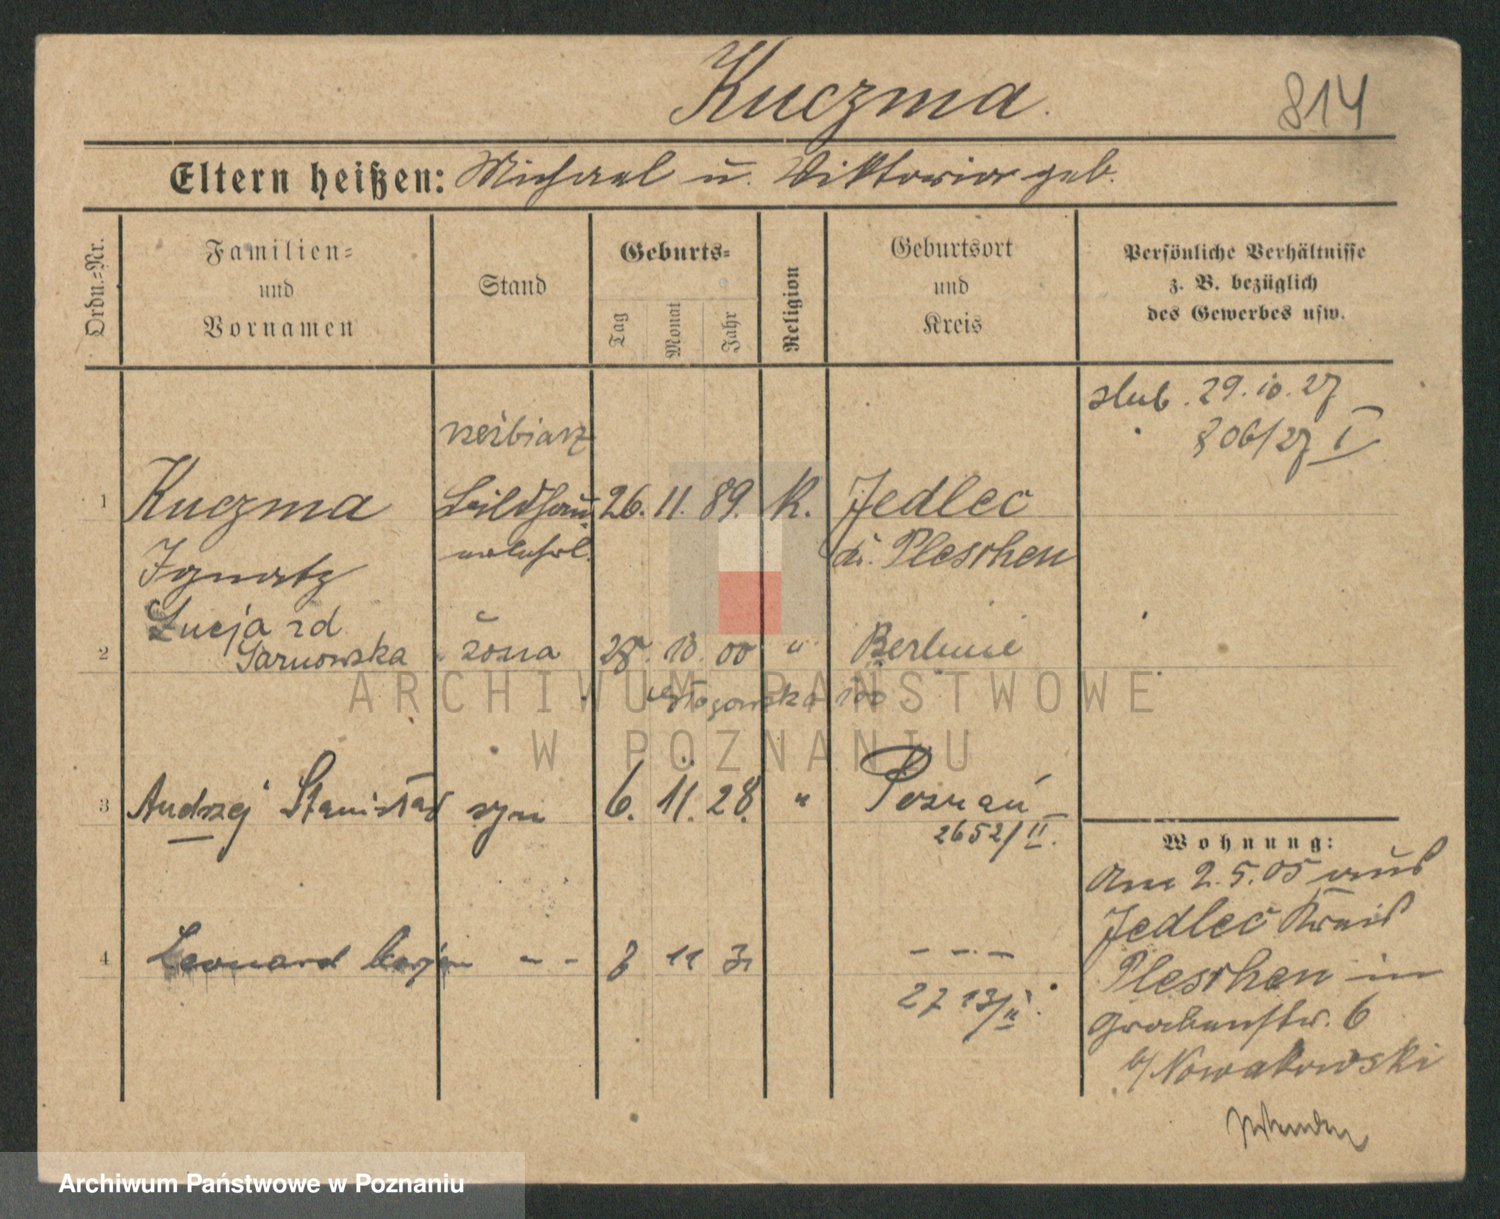 Kuczma
814
Eltern heißen: Michael u. Viktoria geb.
Ordn.=Nr.
Familien=
und
Vornamen
Stand
Geburts=
Tag
Monat
Jahr
Religion
Geburtsort
und
Kreis
Persönliche Verhältnisse
z. B. bezüglich
des Gewerbes usw.
ślub. 29.10.27
806/27 I
rzeźbiarz
1 Kuczma Bildhau 26. 11. 89. K. Jedlec
Ignatz Pleschen
Łucja zd
2 Sarnowska żona 10. 00 " Berlinie
ARCHIWUM PAŃSTWOWE
W POZNANIU
3 Andrzej Stanisław syn 6. 11. 28. " Poznań
2652/II.
4 Leonard - - 8 11 31 - - -
2713/II.
Wohnung:
Am 2.5.05 aus
Jedlec Kreis
Pleschen in
Grabenstr. 6
b/ Nowakowski
Archiwum Państwowe w Poznaniu